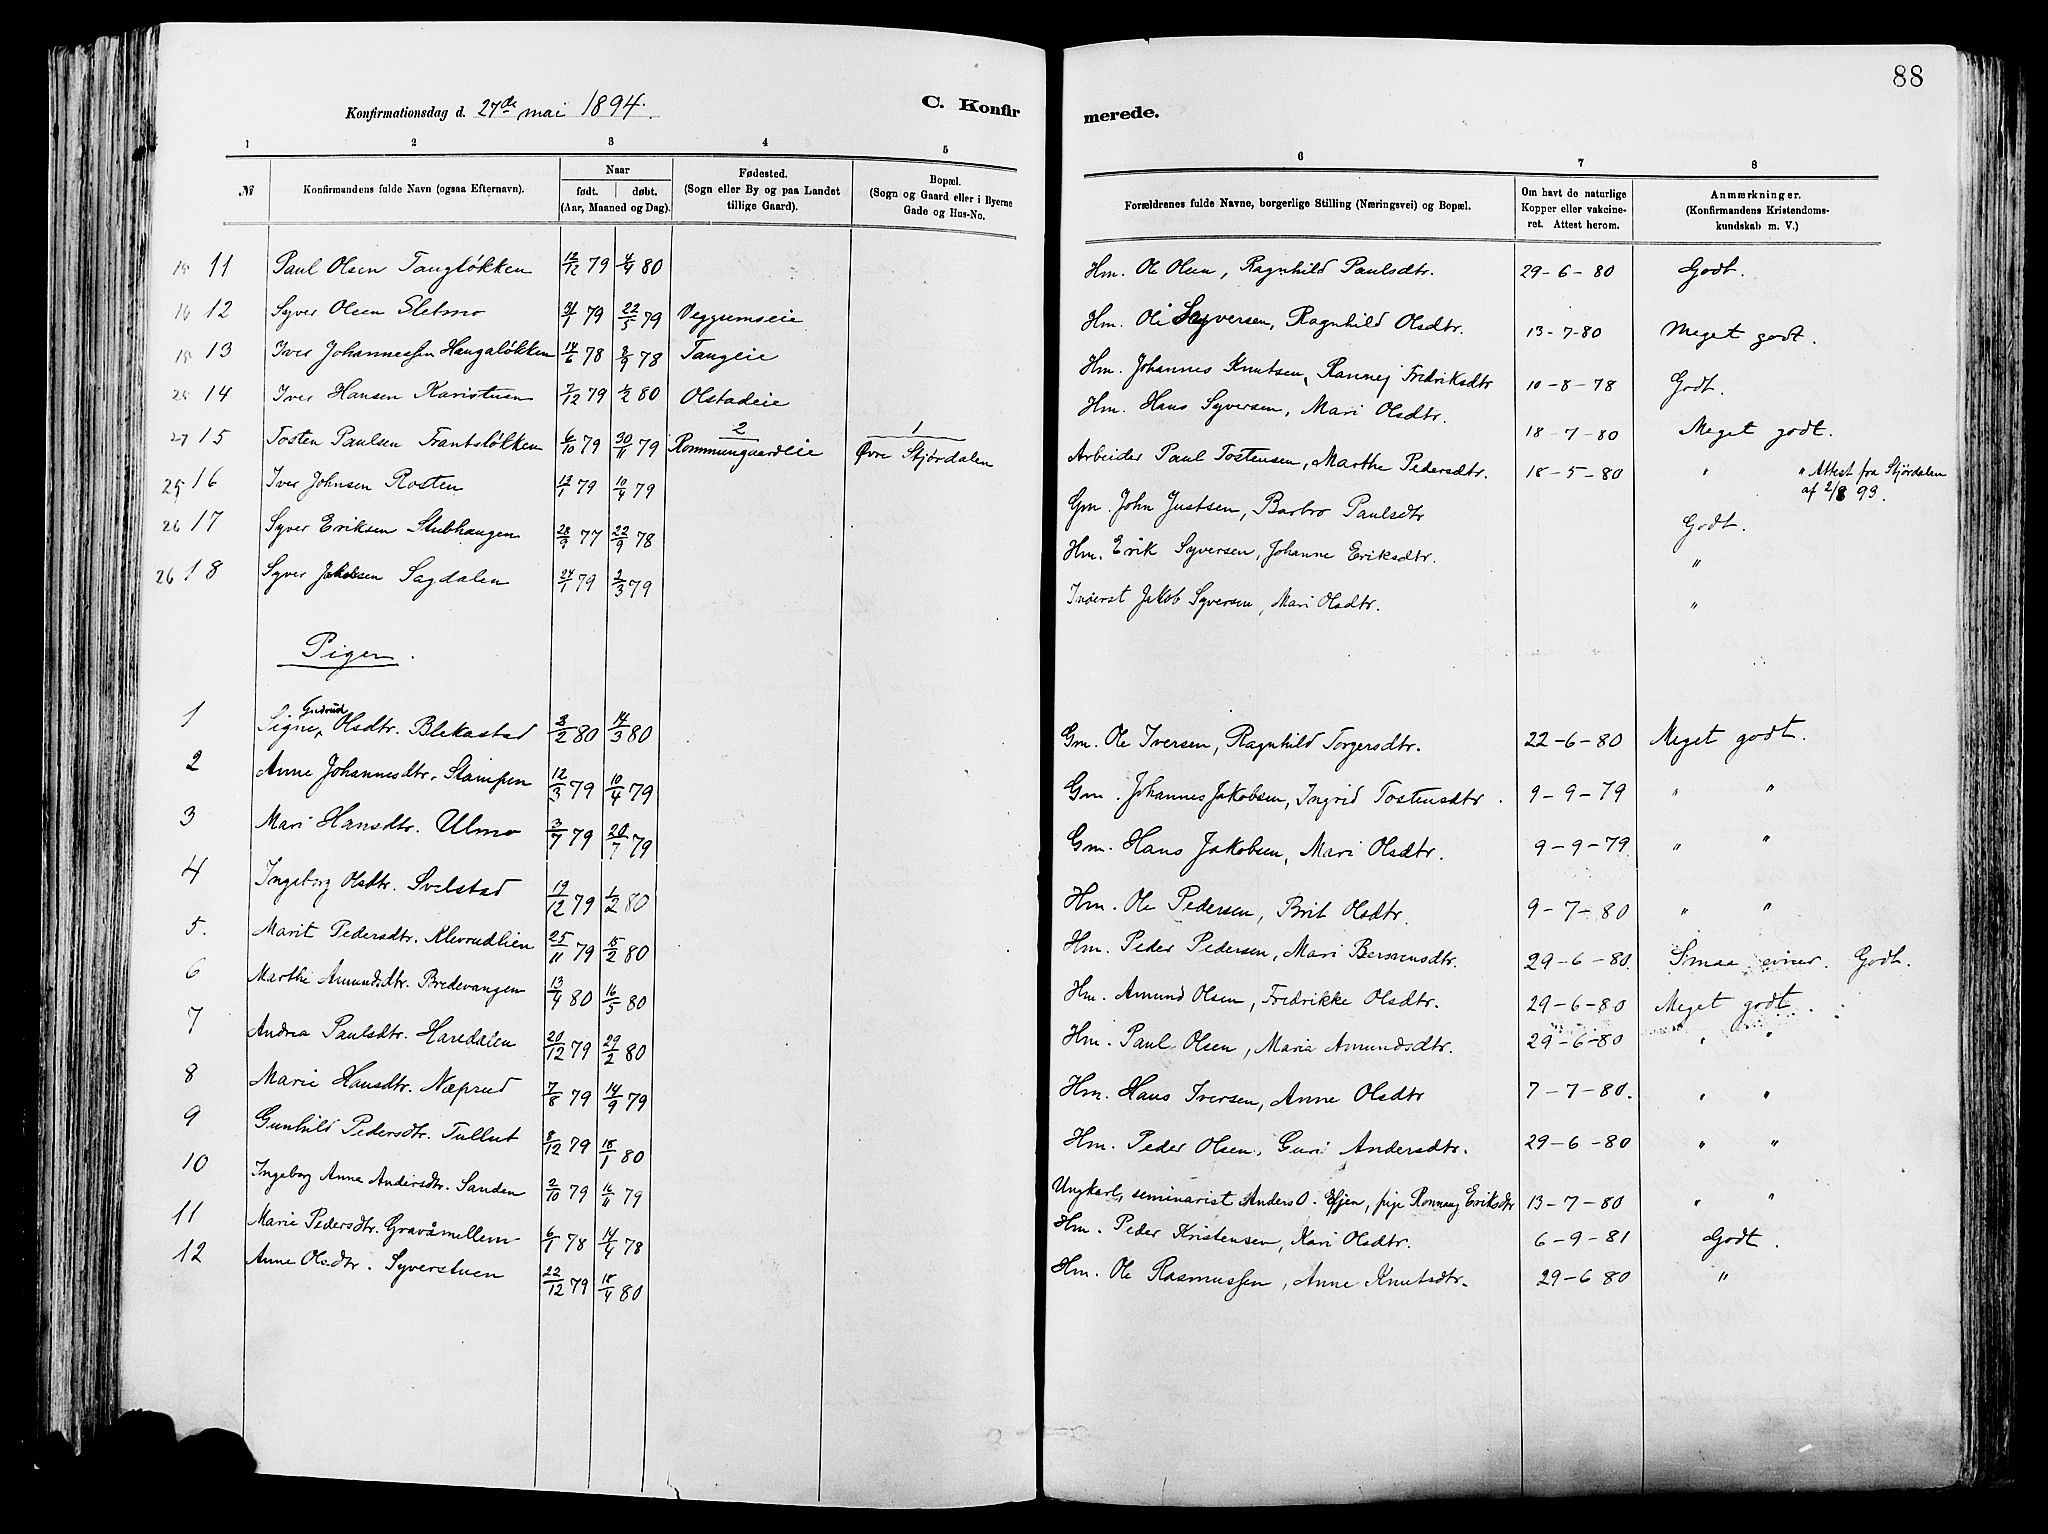 88
Konfirmationsdag d. 27de mai 1894.
C. Konfirmerede.
1 2 3 4 5 6 7 8
№ | Konfirmandens fulde Navn (ogsaa Efternavn). | Naar født. døbt. (Aar, Maaned og Dag). | Fødested. (Sogn eller By og paa Landet tillige Gaard). | Bopæl. (Sogn og Gaard eller i Byerne Gade og Hus-No. | Forældrenes fulde Navne, borgerlige Stilling (Næringsvei) og Bopæl. | Om havt de naturlige Kopper eller vakcineret. Attest herom. | Anmærkninger. (Konfirmandens Kristendomskundskab m. V.)
11 Paul Olsen Tangløkken 12/12 79 4/4 80 Hm. Ole Olsen, Ragnhild Paulsdtr. 29-6-80 Godt.
12 Syver Olsen Sletmo 31/1 79 22/5 79 Veggumseie Hm. Ole Syversen, Ragnhild Olsdtr. 13-7-80 Meget godt.
13 Iver Johannessen Haugaløkken 14/6 78 8/9 78 Tangeie Hm. Johannes Knutsen, Rannej Fredriksdtr 10-8-78 Godt.
14 Iver Hansen Karistuen 7/12 79 1/2 80 Olstadeie Hm. Hans Syversen, Mari Olsdtr. 18-7-80 Meget godt.
15 Tosten Paulsen Frantsløkken 6/10 79 30/11 79 2 Rommungaardeie 1 Øvre Stjørdalen Arbeider Paul Tostensen, Marthe Pedersdtr. 18-5-80 " " Attest fra Stjørdalen af 2/8 93.
25 16 Iver Johnsen Rosten 12/1 79 10/4 79 Gm. John Justsen, Barbro Paulsdtr Godt.
26 17 Syver Eriksen Stubhaugen 28/9 77 22/9 78 Hm. Erik Syversen, Johanne Eriksdtr. "
26 18 Syver Jakobsen Sagdalen 24/1 79 2/3 79 Inderst Jakob Syversen, Mari Olsdtr. "
Piger.
1 Signe Gudrud Olsdtr. Blekastad 3/2 80 14/3 80 Gm. Ole Iversen, Ragnhild Torgersdtr. 22-6-80 Meget godt.
2 Anne Johannesdtr. Stampen 12/3 79 10/4 79 Gm. Johannes Jakobsen, Ingrid Tostensdtr. 9-9-79 " "
3 Mari Hansdtr. Ulmo 3/7 79 20/7 79 Gm. Hans Jakobsen, Mari Olsdtr. 9-9-79 " "
4 Ingeborg Olsdtr. Svelstad 19/12 79 1/2 80 Hm. Ole Pedersen, Brit Olsdtr. 9-7-80 " "
5. Marit Pedersdtr. Klevrudlien 25/11 79 15/2 80 Hm. Peder Pedersen, Mari Bersvensdtr. 29-6-80. Smaa evner. Godt.
6 Marthe Amundsdtr. Bredevangen 13/4 80 16/5 80 Hm. Amund Olsen, Fredrikke Olsdtr. 29-6-80 Meget godt.
7 Andrea Paulsdtr. Haredalen 20/12 79 29/2 80 Hm. Paul Olsen, Maria Amundsdtr. 29-6-80 " "
8 Marie Hansdtr. Næprud 7/8 79 14/9 79 Hm. Hans Iversen, Anne Olsdtr 7-7-80. " "
9 Gunhild Pedersdtr. Tullut 8/12 79 18/1 80 Hm. Peder Olsen, Guri Andersdtr. 29-6-80 " "
10 Ingeborg Anne Andersdtr. Sanden 2/10 79 16/11 79 Ungkarl, seminarist Anders O. Efjen, pige Ronnaug Eriksdtr 13-7-80 " "
11 Marie Pedersdtr. Gravåmellem 6/1 78 14/4 78 Hm. Peder Kristensen, Kari Olsdtr. 6-9-81 Godt.
12 Anne Olsdtr. Syverstuen 22/12 79 18/4 80 Hm. Ole Rasmussen, Anne Knutsdtr. 29-6 80 "